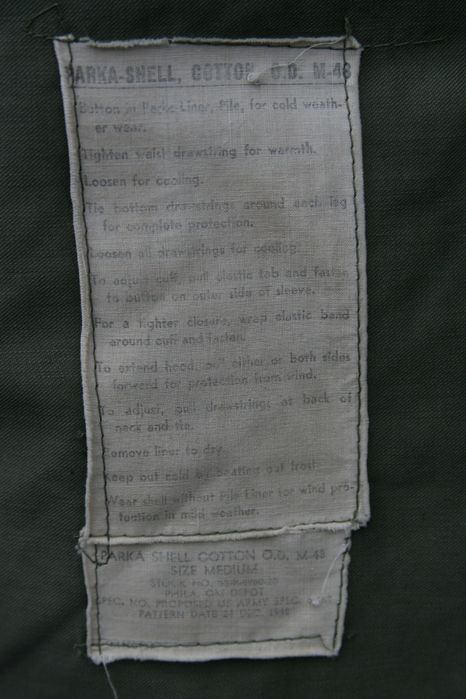 PARKA-SHELL, COTTON, O.D. M-48
Button in Parka-Liner, Pile, for cold weath-
er wear.
Tighten waist drawstring for warmth.
Loosen for cooling.
Tie bottom drawstrings around each leg
for complete protection.
Loosen all drawstrings for cooling.
To adjust cuff, pull elastic tab and fasten
to button on outer side of sleeve.
For a tighter closure, wrap elastic band
around cuff and fasten.
To extend hood, pull either or both sides
forward for protection from wind.
To adjust, pull drawstrings at back of
neck and tie.
Remove liner to dry.
Keep out cold by beating out frost.
Wear shell without Pile Liner for wind pro-
tection in mild weather.
PARKA SHELL COTTON O.D. M-48
SIZE MEDIUM
STOCK NO.
PHILA. QM DEPOT
SPEC. NO. PROPOSED US ARMY SPEC.
PATTERN DATE 21 DEC. 1948